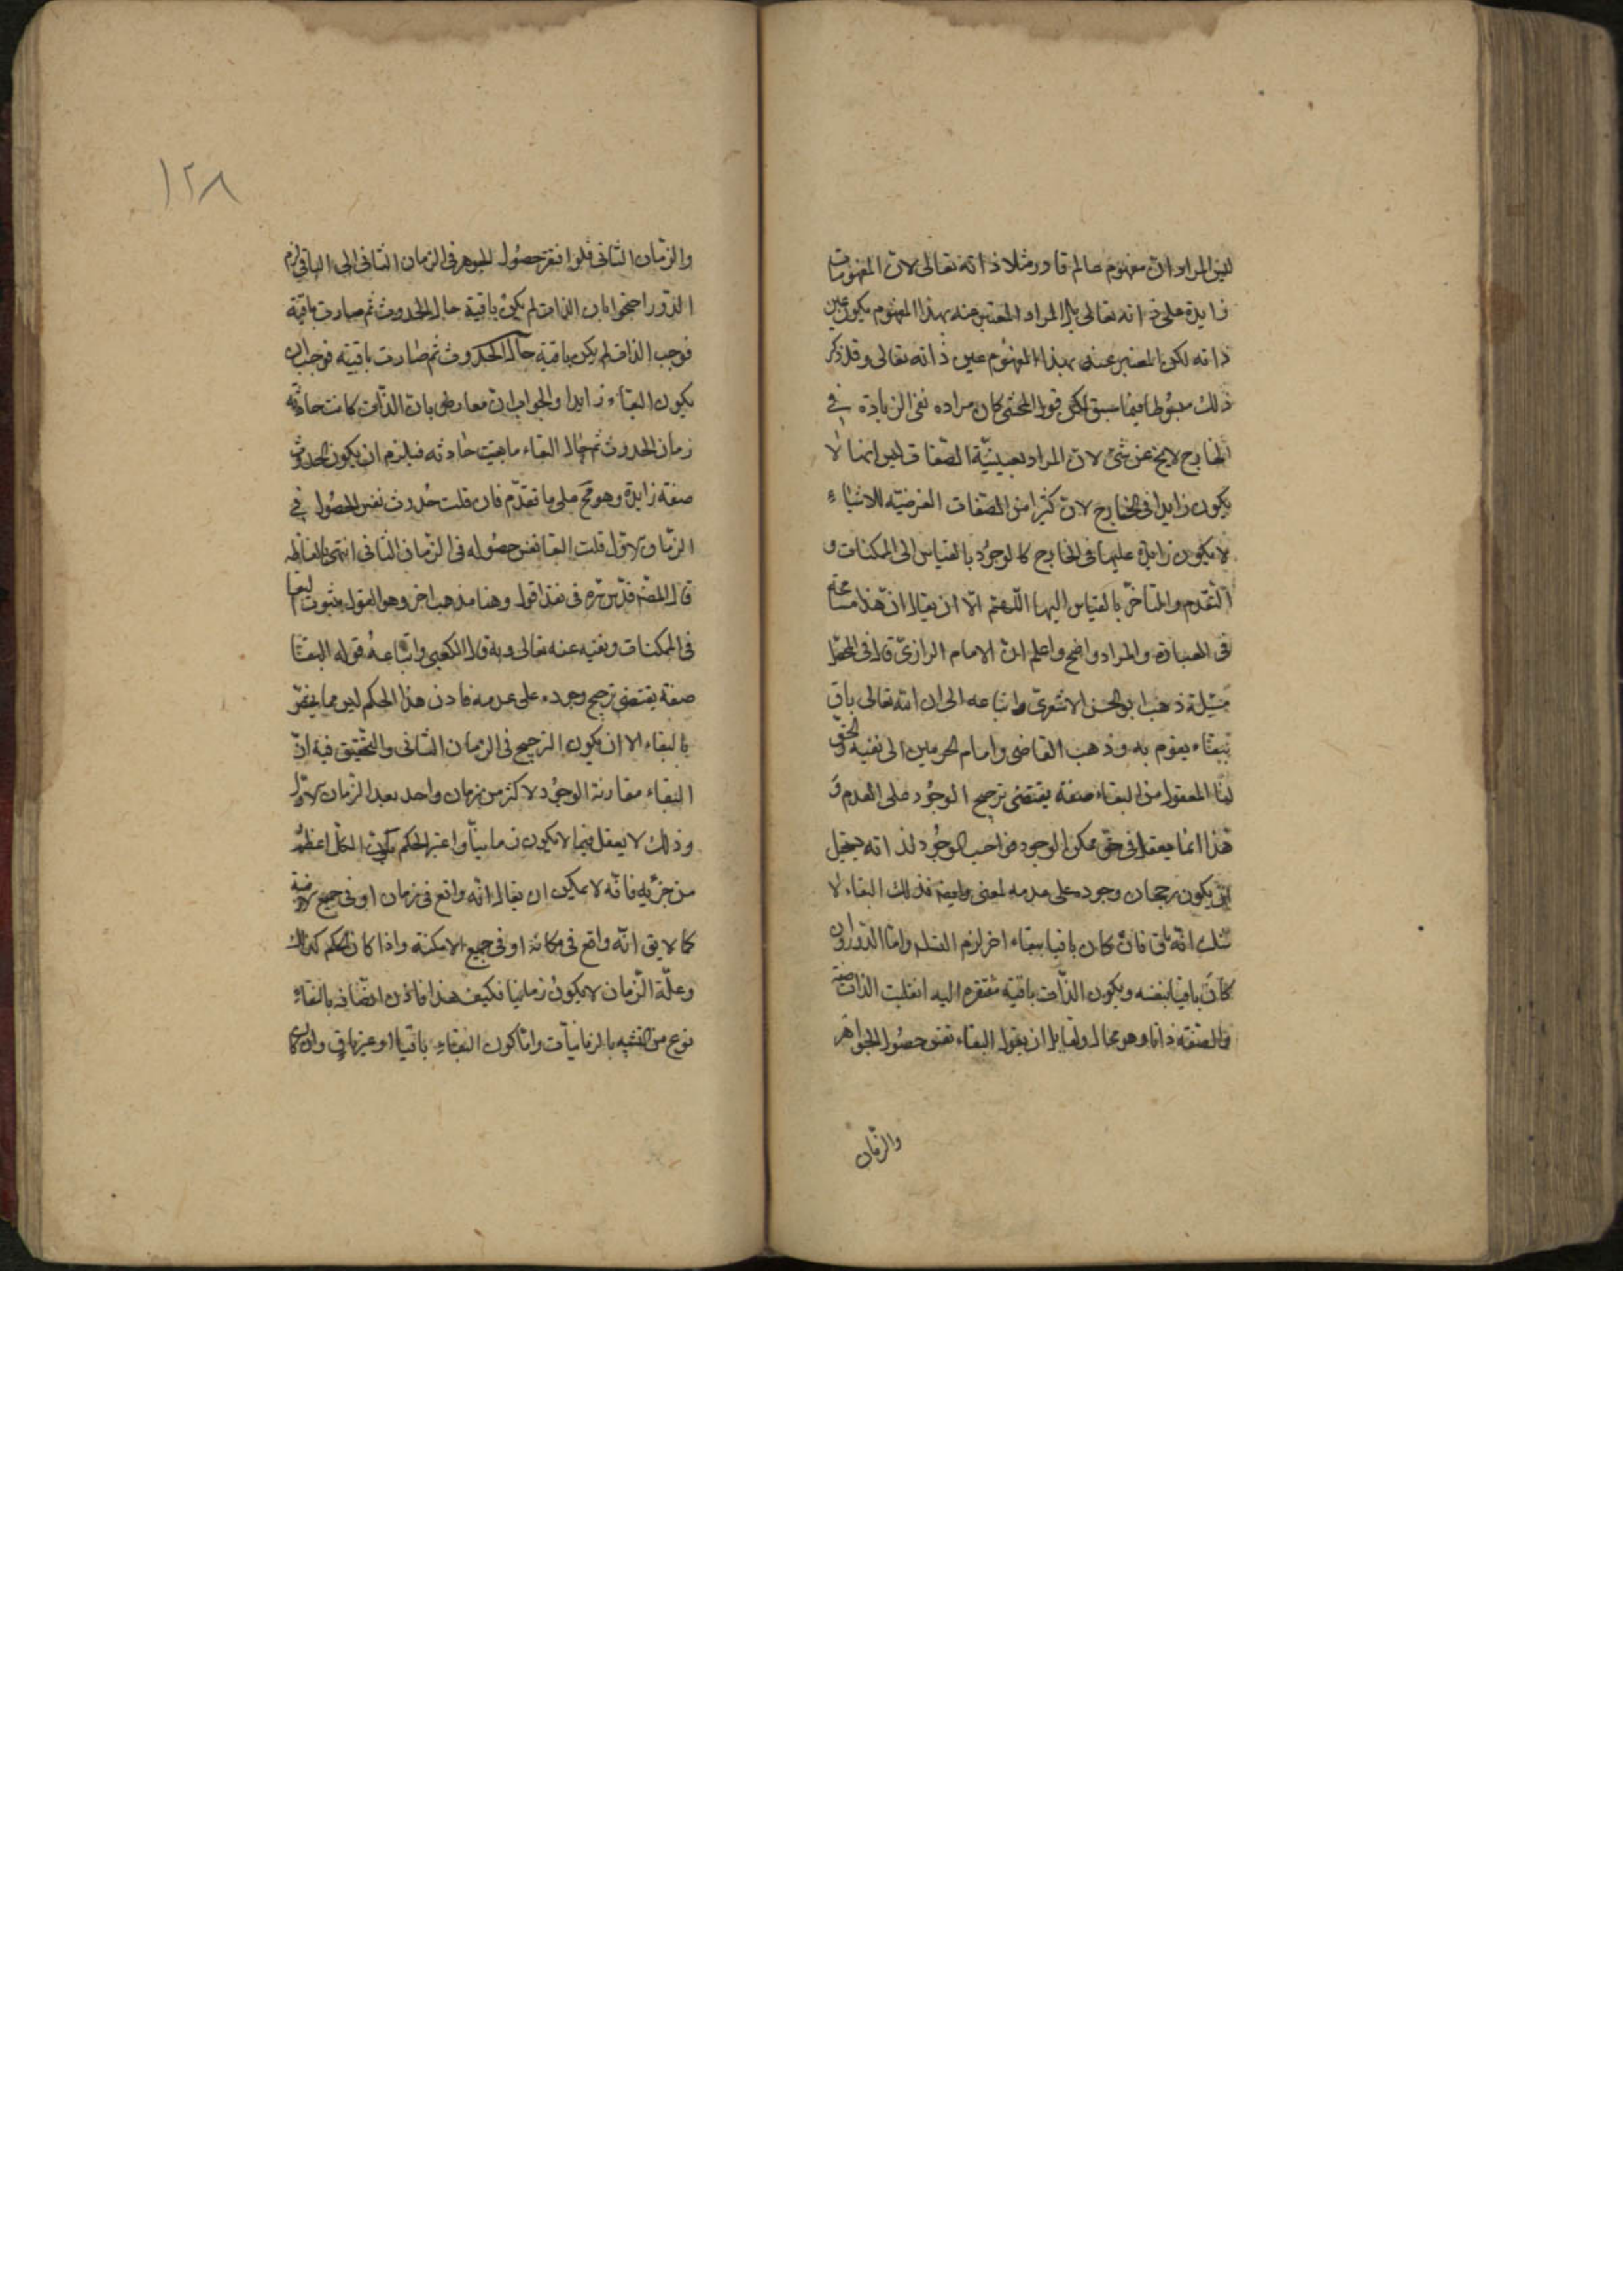 ليس المراد ان مفهوم عالم قادر مثلا ذاته تعالى لان المفهومات
زايدة على ذاته تعالى بل المراد المعتبر عنه بهذا المفهوم يكون عين
ذاته لكون المعتبر عنه بهذا المفهوم عين ذاته تعالى وقد ذكر
ذلك مبسوطا فيما سبق لكن قول المحشى كان مراده نفى الزيادة في
الخارج لا يخ عن شئ لان المراد بعينيّة الصّفات ليس انها لا
يكون زايدا فى الخارج لان كثيرا من الصّفات العرضيّه للاشياء
لا يكون زايدة عليها فى الخارج كالوجود بالقياس الى الممكنات و
التقدم والتأخّر بالقياس اليها اللّهمّ الّا ان يقال انّ هذا مسامحة
فى العبارة والمراد واضح واعلم انّ الامام الرازىّ قال فى المحصّل
مسئلة ذهب ابو الحسن الاشعرىّ واتباعه الى ان الله تعالى باق
ببقاء يقوم به وذهب القاضى وامام الحرمين الى نفيه وهو الحقّ
لنا المعقول من البقاء صفة يقتضى ترجيح الوجود على العدم و
هذا انما يعقل فى حقّ ممكن الوجود فواجب الوجود لذاته يستحيل
ان يكون رجحان وجوده على عدمه لمعنى وايضا فذلك البقاء لا
شك انّه باق فان كان باقيا ببقاء اخر لزم التسلسل وامّا الدّور او ان
كان باقيا بنفسه ويكون الذّات باقية مفتقره اليه انقلبت الذات صفة
والصّفة ذاتا وهو محال ولقايل ان يقول البقاء نفس حصول الجواهر
والزمان
١٢٨
والزّمان الثّانى فلو افتقر حصول الجوهر فى الزمان الثانى الى الباقى لزم
الدّور احتجوا بان الذات لم يكن باقية حال الحدوث ثم صارت باقية
فوجب الذات لم يكن باقية حال الحدوث ثم صارت باقيته فوجب ان
يكون البقاء زايدا والجواب ان معارض بان الذّات كانت حادثه
زمان الحدوث ثم حال البقاء ما بقيت حادثه فيلزم ان يكون الحدوث
صفة زايدة وهو مح على ما تقدّم فان قلت حدوث نفس الحصول في
الزمان الاوّل قلت البقا نفس حصوله فى الزمان الثانى انتهى بالفاظه
قال المصّ قدّس سرّه فى نقد اقول وهنا مذهب اخر وهو القول بثبوت البقا
فى الممكنات ونفيه عنه تعالى وبه قال الكعبى واتباعه قوله البقا
صفة يقتضى ترجيح وجوده على عدمه فاذن هذا الحكم ليس مما يختصّ
بالبقاء الا ان يكون الترجيح فى الزمان الثانى والتحقيق فيه انّ
البقاء مقارنة الوجود لاكثر من زمان واحد بعد الزمان الاوّل
وذلك لا يعقل فيما لا يكون زمانيّا واعتبر الحكم بكون الكلّ اعظم
من جزئه فانّه لا يمكن ان يقال انّه واقع فى زمان او فى جميع الازمنة
كما لا يق انّه واقع فى مكانه او فى جميع الامكنة واذا كان الحكم كذلك
وعلّة الزّمان لا يكون زمانيا فكيف هذا فاذن اتّصافه بالبقاء
نوع من التشبيه بالزمانيّات وامّا كون البقاء باقيا او غير باق وان كان